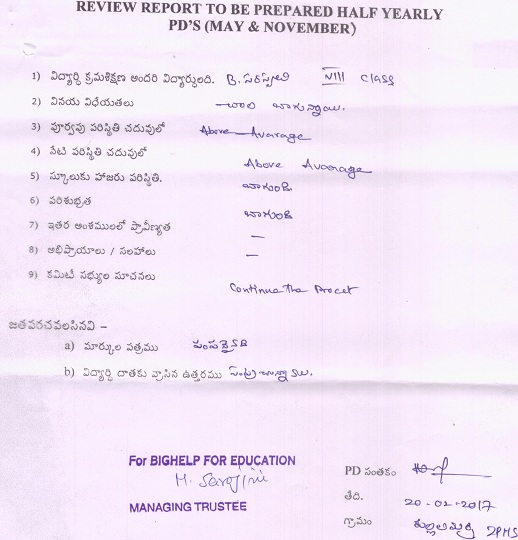 REVIEW REPORT TO BE PREPARED HALF YEARLY
PD'S (MAY & NOVEMBER)
1) విద్యార్ధి క్రమశిక్షణ అందరి విద్యార్థులది. B. సరస్వతి VIII Class
2) వినయ విధేయతలు చాలా బాగున్నాయి.
3) పూర్వపు పరిస్థితి చదువులో Above Avarage
4) నేటి పరిస్థితి చదువులో Above Avarage
5) స్కూలుకు హాజరు పరిస్థితి. బాగుంది
6) పరిశుభ్రత బాగుంది
7) ఇతర అంశములలో ప్రావీణ్యత —
8) అభిప్రాయాలు / సలహాలు —
9) కమిటీ సభ్యుల సూచనలు Continue the
జతపరచవలసినవి –
a) మార్కుల పత్రము
b) విద్యార్ధి దాతకు వ్రాసిన ఉత్తరము
For BIGHELP FOR EDUCATION
M. Sarojini
MANAGING TRUSTEE
PD సంతకం
తేది. 20-02-2017
గ్రామం ZPHS